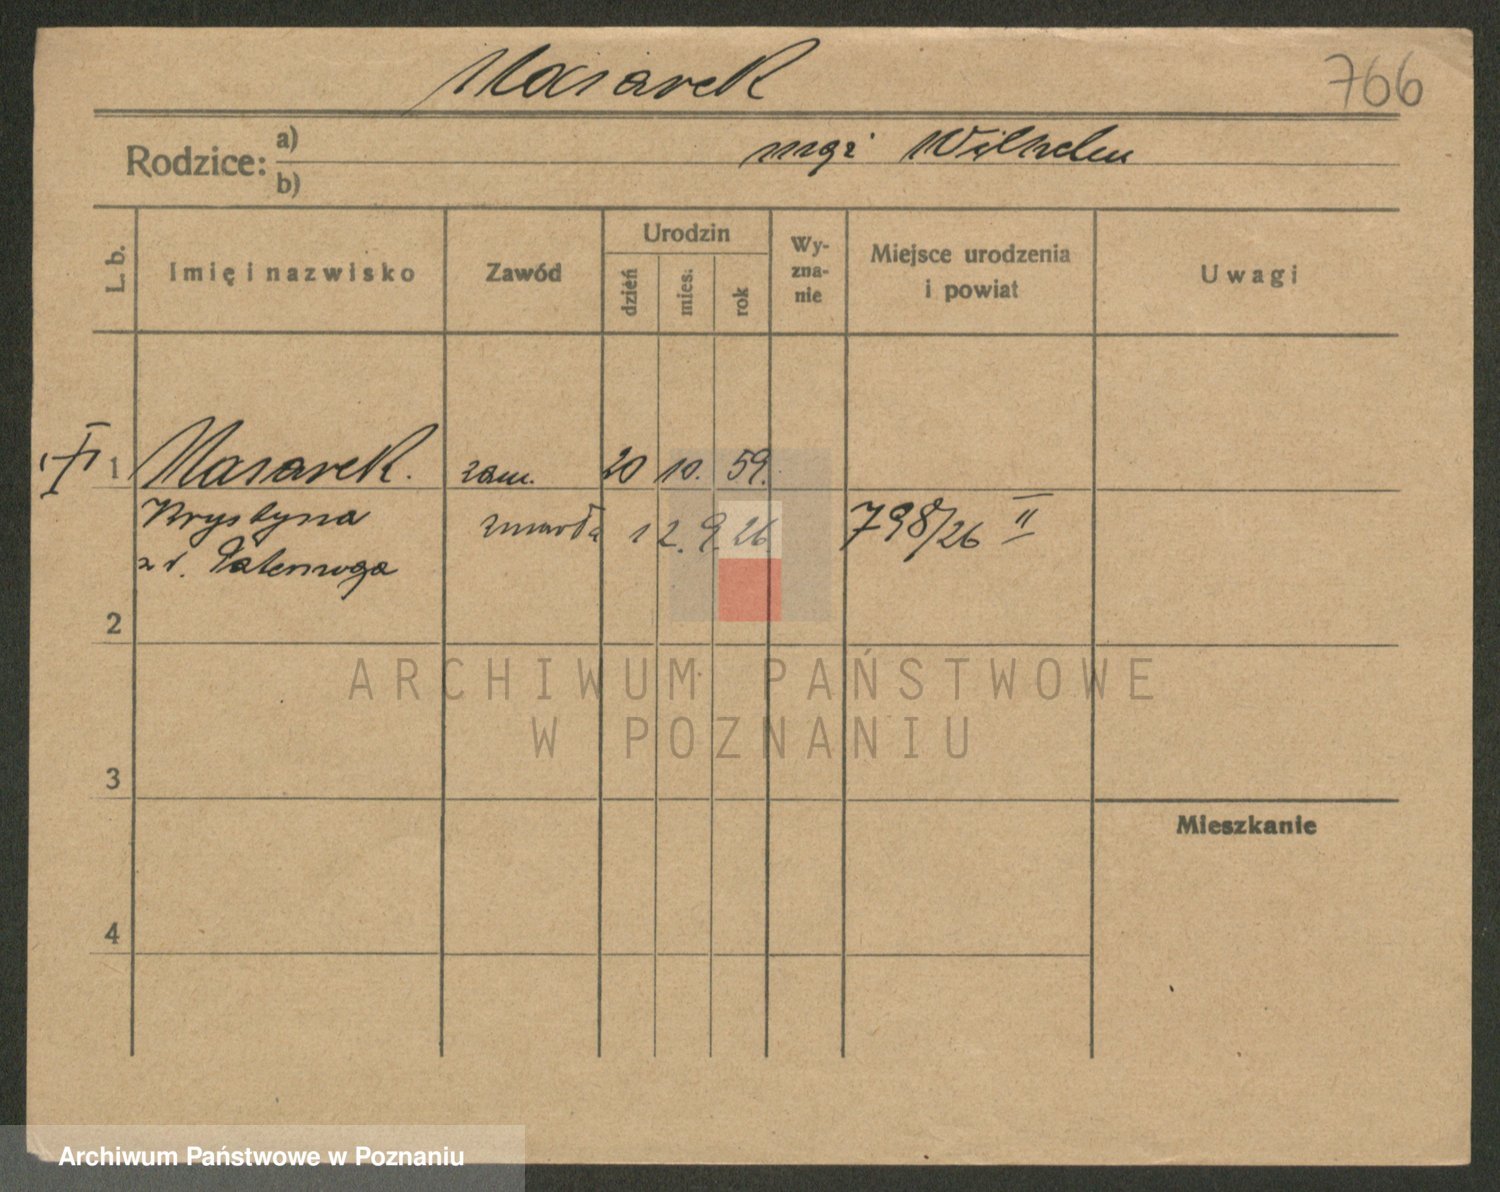 Masarek
766
Rodzice: a)
mąż Wilhelm
b)
L. b.
Imię i nazwisko
Zawód
Urodzin
dzień
mies.
rok
Wy-
zna-
nie
Miejsce urodzenia
i powiat
Uwagi
1 Masarek. zam. 20 10. 59.
Krystyna zmarła 12. 9. 26. 798/26 II
z d.
2
3
Mieszkanie
4
ARCHIWUM PAŃSTWOWE
W POZNANIU
Archiwum Państwowe w Poznaniu